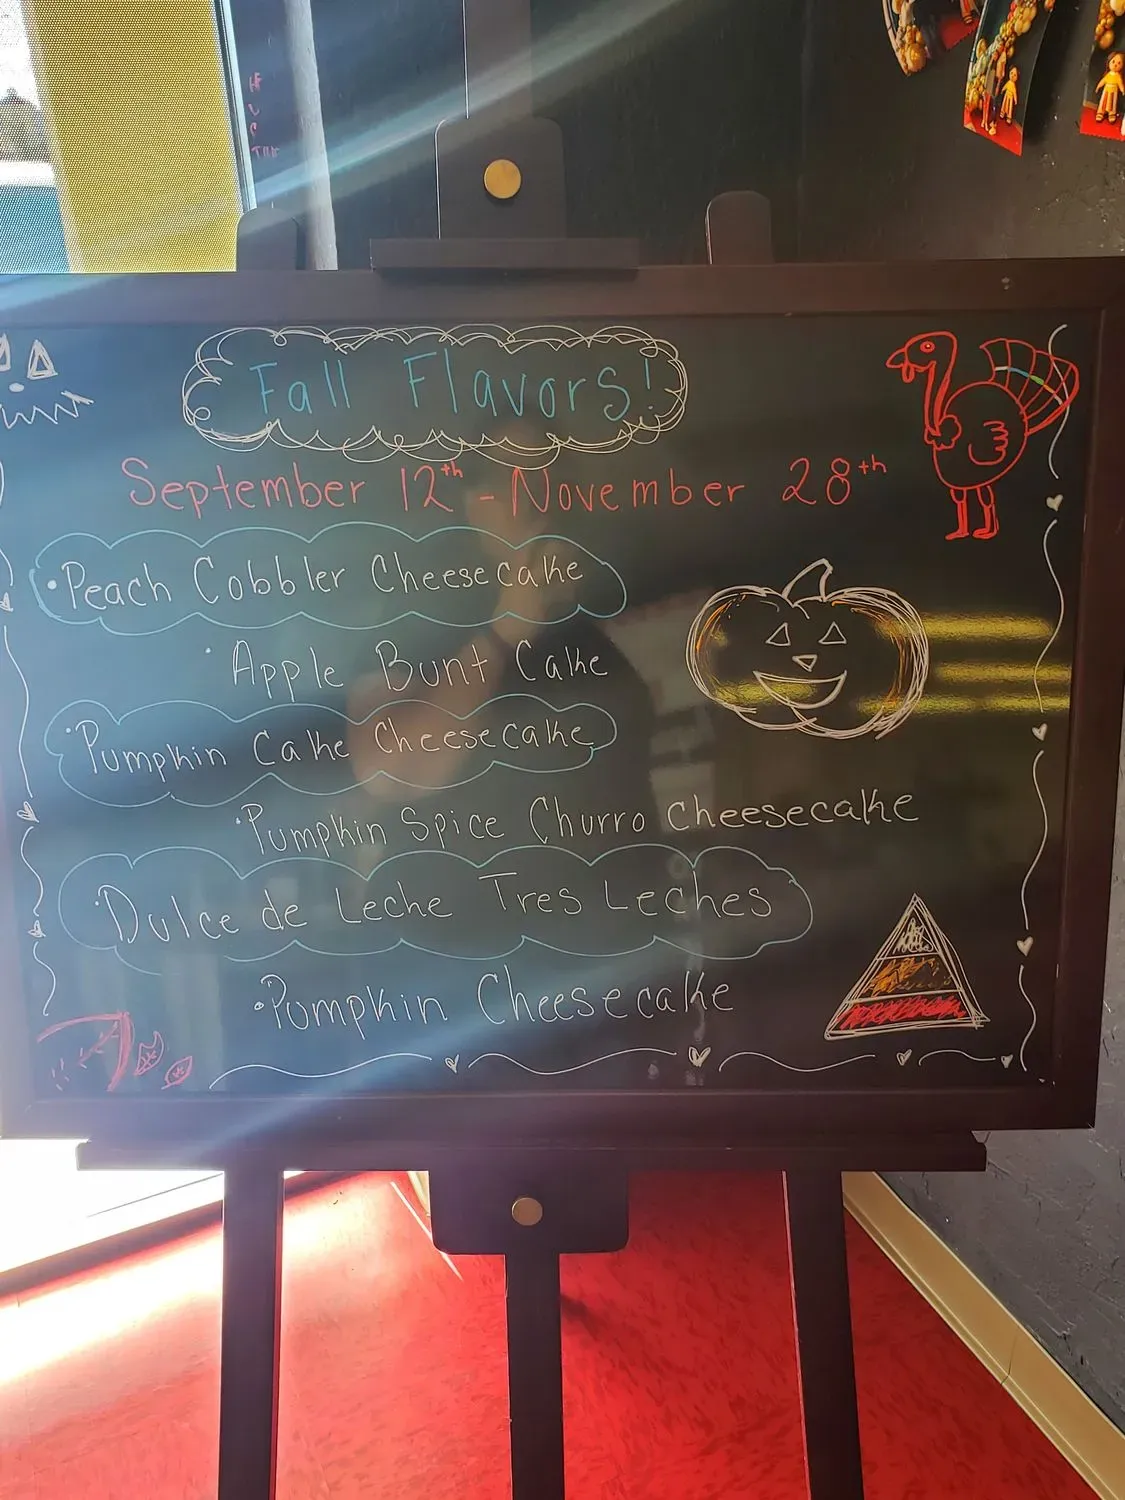 Fall Flavors!
September 12th - November 28th
• Peach Cobbler Cheesecake
• Apple Bunt Cake
• Pumpkin Cake Cheesecake
• Pumpkin Spice Churro cheesecake
• Dulce de Leche Tres Leches
• Pumpkin Cheesecake